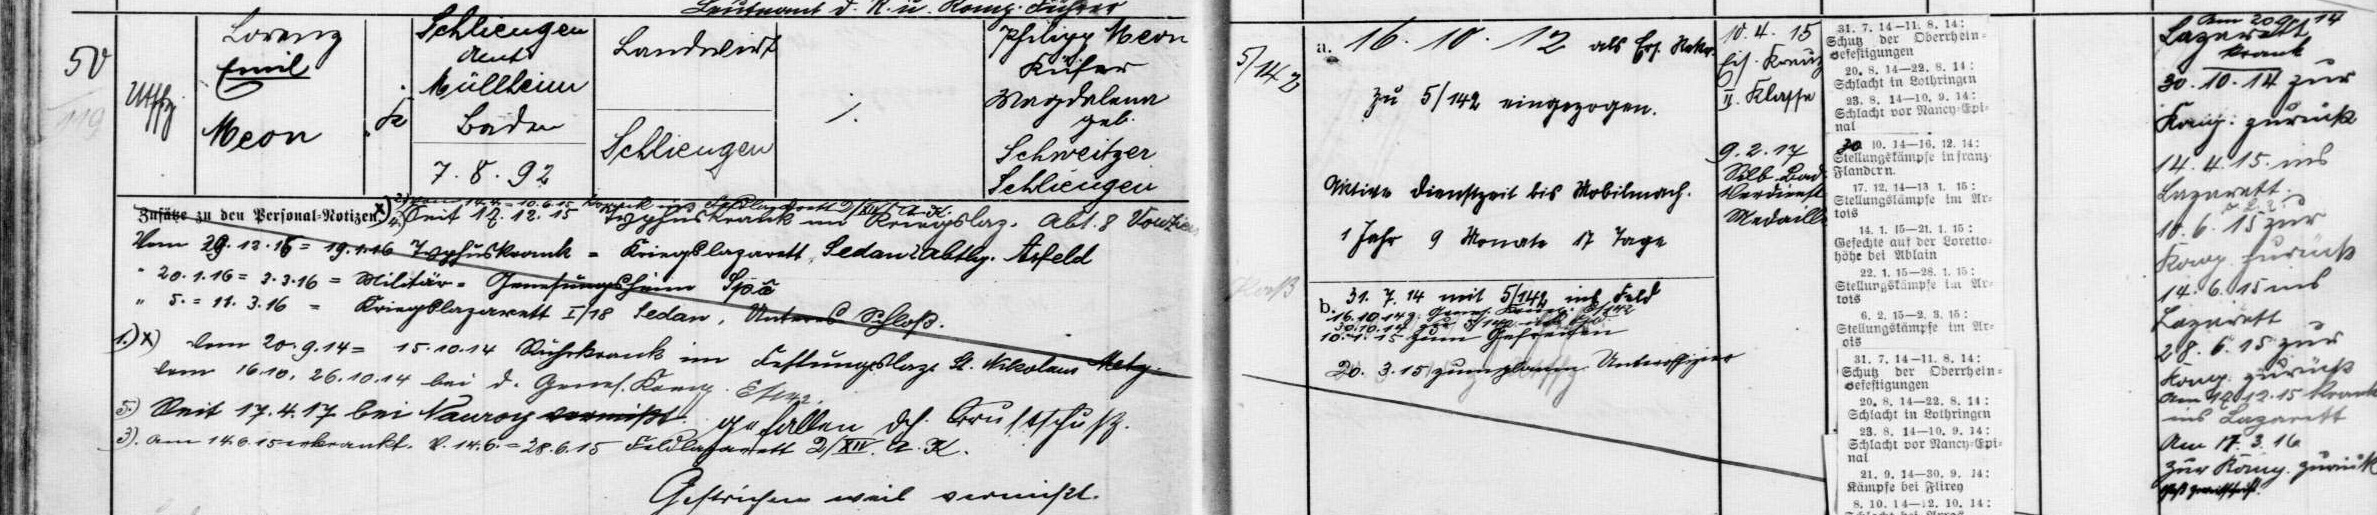 Leutnant d. R. u. Komp. Führer
50
119
Utffz
Lorenz
Emil
Meon
K
Schliengen
Amt
Müllheim
Baden
7. 8. 92
Landwirt
Schliengen
/.
Philipp Meon
Küfer
Magdalena
geb.
Schweitzer
Schliengen
Zusätze zu den Personal-Notizen.
Seit 17. 12. 15 Typhuskrank im Kriegslaz. Abt. 8
Vom 29. 12. 15 = 19.1.16 Typhuskrank = Kriegslazarett, Sedan Abtlg. Asfeld
" 20. 1. 16 = 3. 3. 16 = Militär- Genesungsheim Spa
" 5. = 11. 3. 16 = Kriegslazarett I/18 Sedan, Unteres Schloß.
1.) x) Vom 20. 9. 14 = 15. 10. 14 Ruhrkrank im Festungslaz. St. Nikolaus Metz.
Vom 16.10. 26.10.14 bei d. Genes. Komp. E/142.
5.) Seit 17. 4. 17 bei Nauroy vermißt. gefallen dch. Brustschuß.
3). am 14.6.15 erkrankt. V. 14.6. = 28.6.15 Feldlazarett 2/XIV. A. K.
Gestrichen weil vermißt.
5/142
a. 16. 10. 12 als Ers. Rekr.
zu 5/142 eingezogen.
Aktive Dienstzeit bis Mobilmach.
1 Jahr 9 Monate 17 Tage
b. 31. 7. 14 mit 5/142 ins Feld
16.10.14 z. Genes. Komp. E/142
30.10.14 zur 5/142
10. 1. 15 zum Gefreiten
20. 3. 15 zum Unteroffizier
10. 4. 15
Eis. Kreuz
II. Klasse
9. 2. 17
Silb. Bad.
Verdienst
Medaille
31. 7. 14—11. 8. 14:
Schutz der Oberrhein-
befestigungen
20. 8. 14—22. 8. 14:
Schlacht in Lothringen
23. 8. 14—10. 9. 14:
Schlacht vor Nancy-Epi-
nal
30 10. 14—16. 12. 14:
Stellungskämpfe in franz.
Flandern.
17. 12. 14—13. 1. 15:
Stellungskämpfe im Ar-
tois
14. 1. 15—21. 1. 15:
Gefechte auf der Loretto-
höhe bei Ablain
22. 1. 15—28. 1. 15:
Stellungskämpfe im Ar-
tois
6. 2. 15—2. 3. 15:
Stellungskämpfe im Ar-
ois
31. 7. 14—11. 8. 14:
Schutz der Oberrhein-
befestigungen
20. 8. 14—22. 8. 14:
Schlacht in Lothringen
23. 8. 14—10. 9. 14:
Schlacht vor Nancy-Epi-
nal
21. 9. 14—30. 9. 14:
Kämpfe bei Flirey
8. 10. 14—12. 10. 14:
Am 20 9. 14
Lazarett
krank
30. 10. 14 zur
Komp. zurück
14. 4. 15. ins
Lazarett.
10. 6. 15 zur
Komp. zurück
14. 6. 15 ins
Lazarett
28. 6. 15 zur
Komp. zurück
Am 12. 15 krank
ins Lazarett
Am 17. 3. 16
zur Komp. zurück